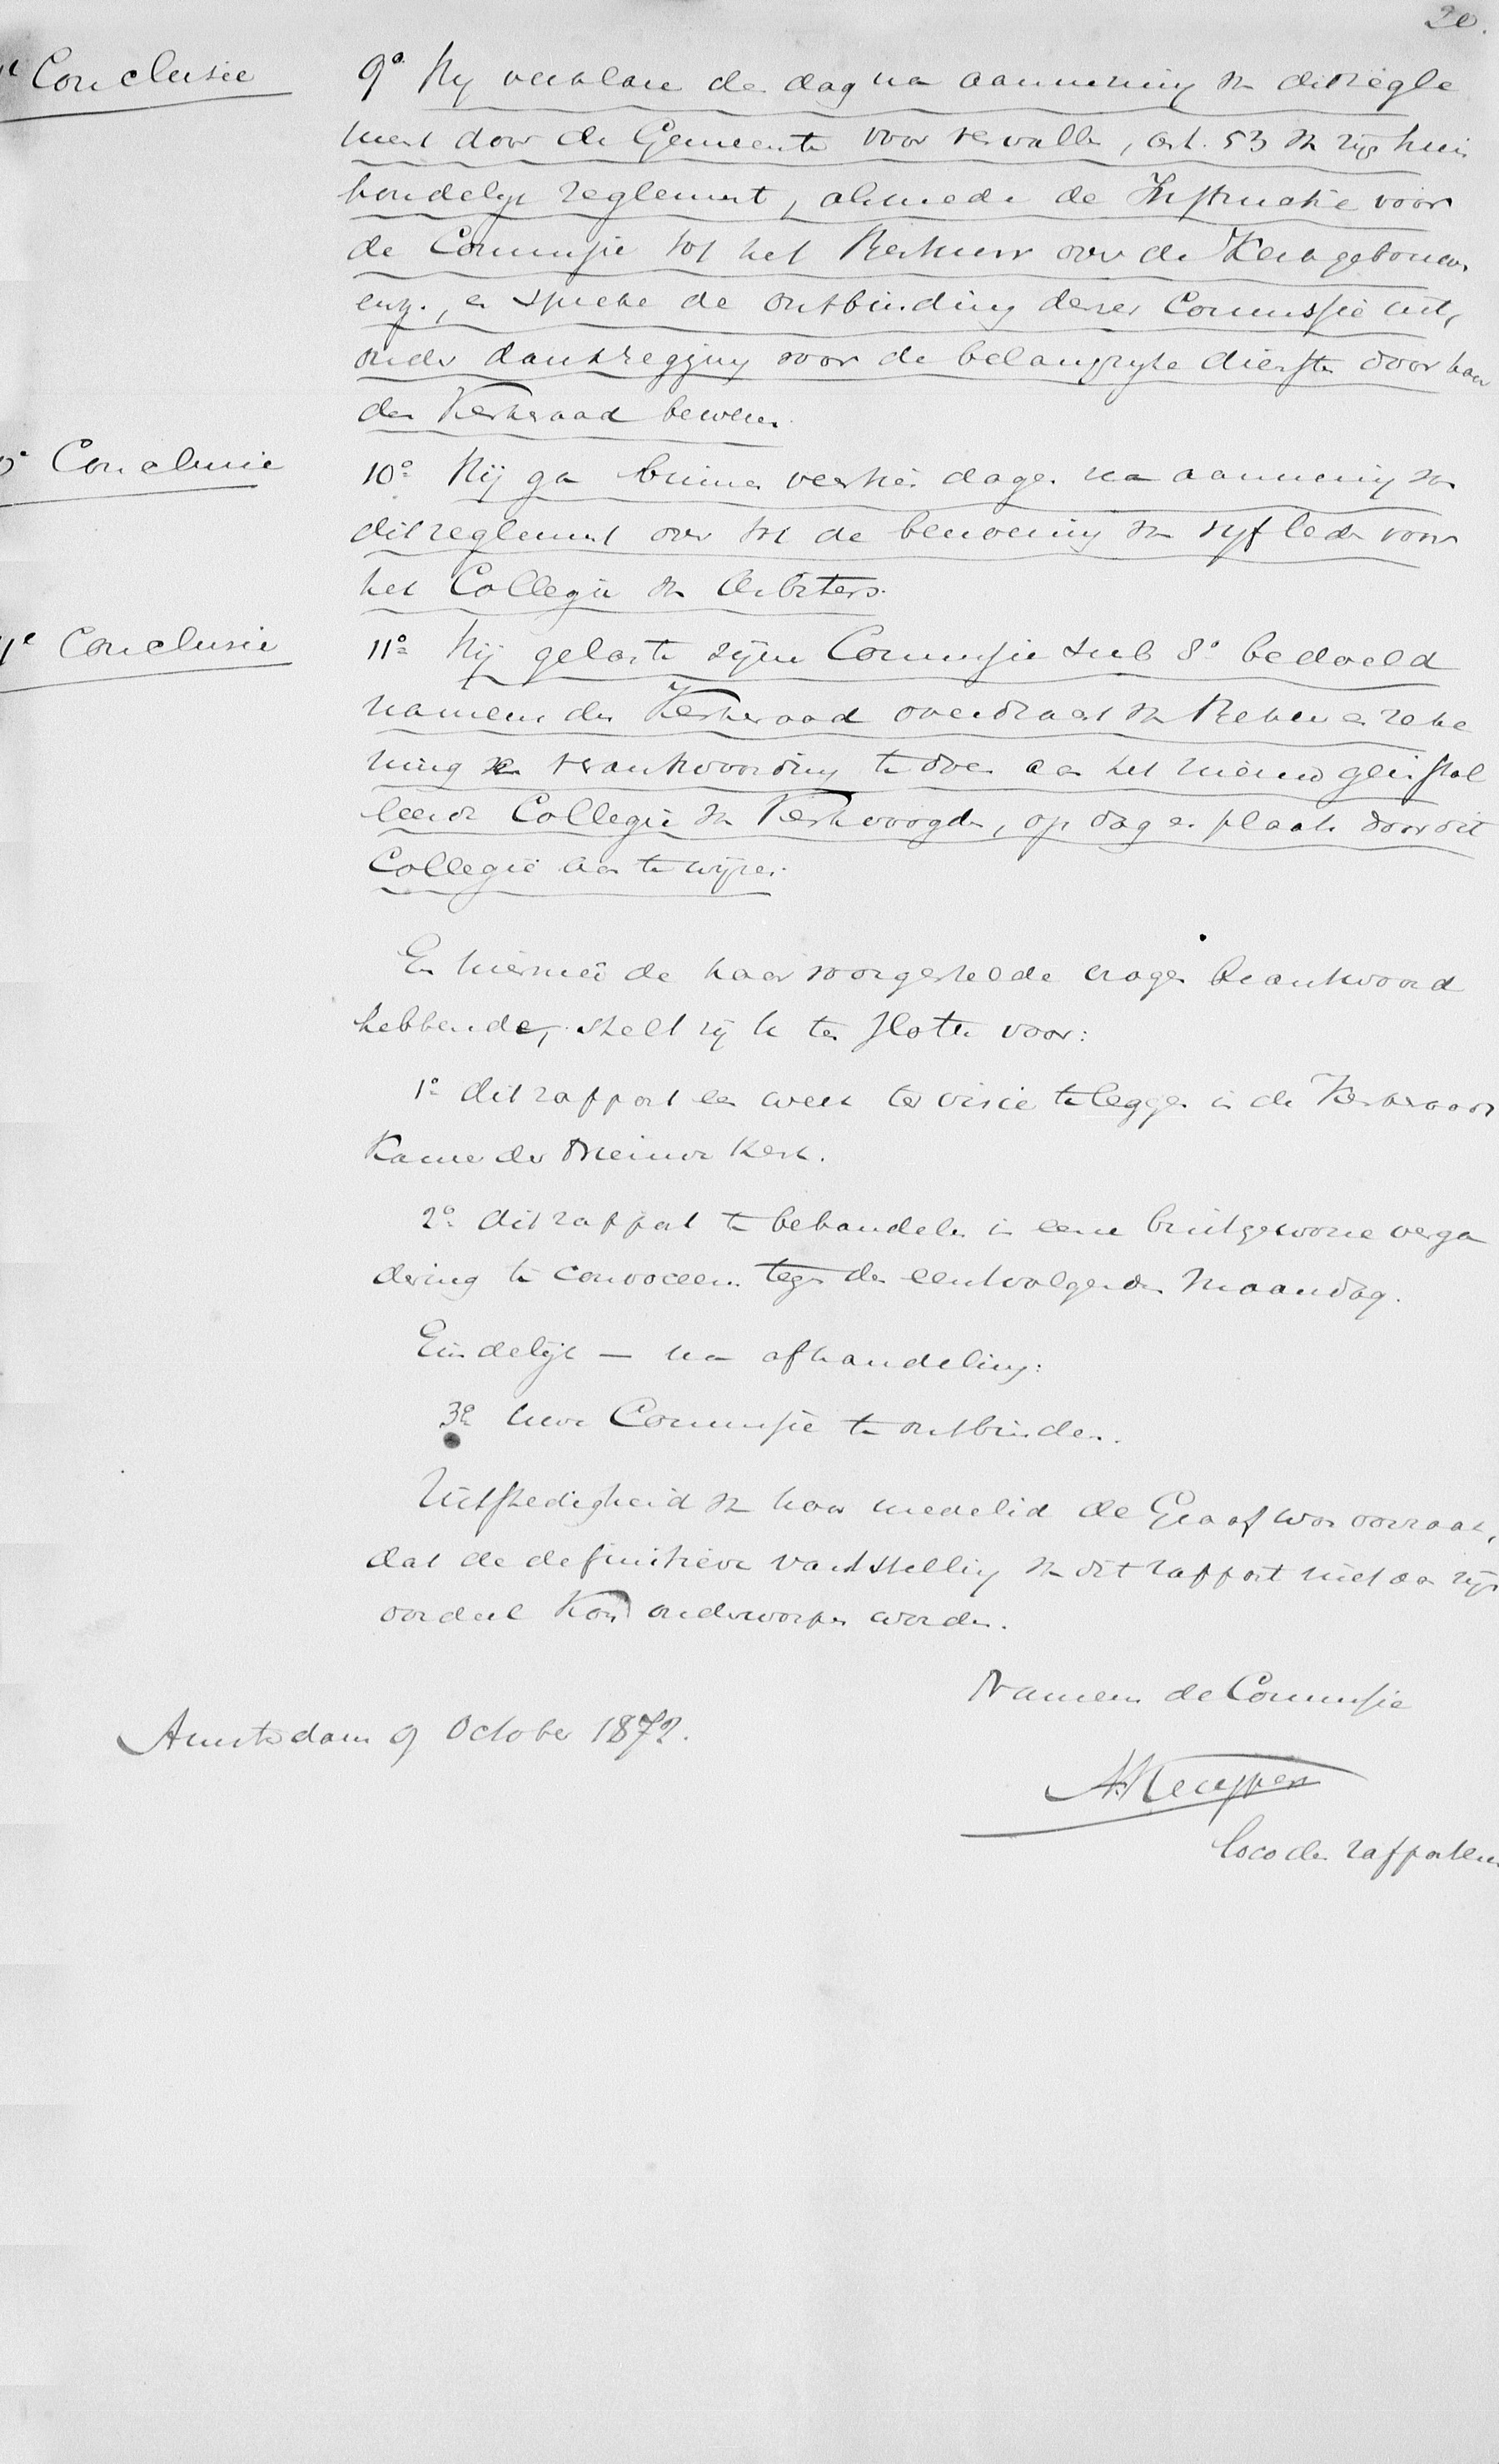 20.
Conclusie
9o Hij verklare den dag na aanneming van dit regle
ment door de Gemeente voor vervallen, art. 53 van zijn huis
houdelijk reglement, alsmede de Instructie voor
de Commissie tot het Bestuur over de Kerkgebouwen
enz., en spreke de ontbinding dezer Commissie uit,
onder dankzegging voor de belangrijke diensten door haar
den Kerkeraad bewezen.
Conclusie
10o Hij ga binnen veertien dagen na aanneming van
dit reglement over tot de benoeming van vijf leden voor
het Collegie van Arbiters.
Conclusie
11o Hij gelaste zijne Commissie sub 8o bedoeld
namens den Kerkeraad overdracht van Beheer en reke
ning en verantwoording te doen aan het nieuw geinstal
leerde Collegie van Kerkvoogden, op dag en plaats door dit
Collegie aan te wijzen.
En hiermeê de haar voorgestelde vragen beantwoord
hebbende, stelt zij U ten slotte voor:
1o dit rapport een week ter visie te leggen in de Kerkeraads
Kamer der Nieuwe Kerk.
2o dit rapport te behandelen in eene buitengewone verga
dering te convoceeren tegen den eerstvolgenden Maandag.
Eindelijk — na afhandeling:
3o uwe Commissie te ontbinden.
Uitstedigheid van haar medelid de Graaf was oorzaak,
dat de definitieve vaststelling van dit rapport niet aan zijn
oordeel kon onderworpen worden.
Namens de Commissie
Amsterdam 9 October 1872.
A Kuyper
loco den rapporteur